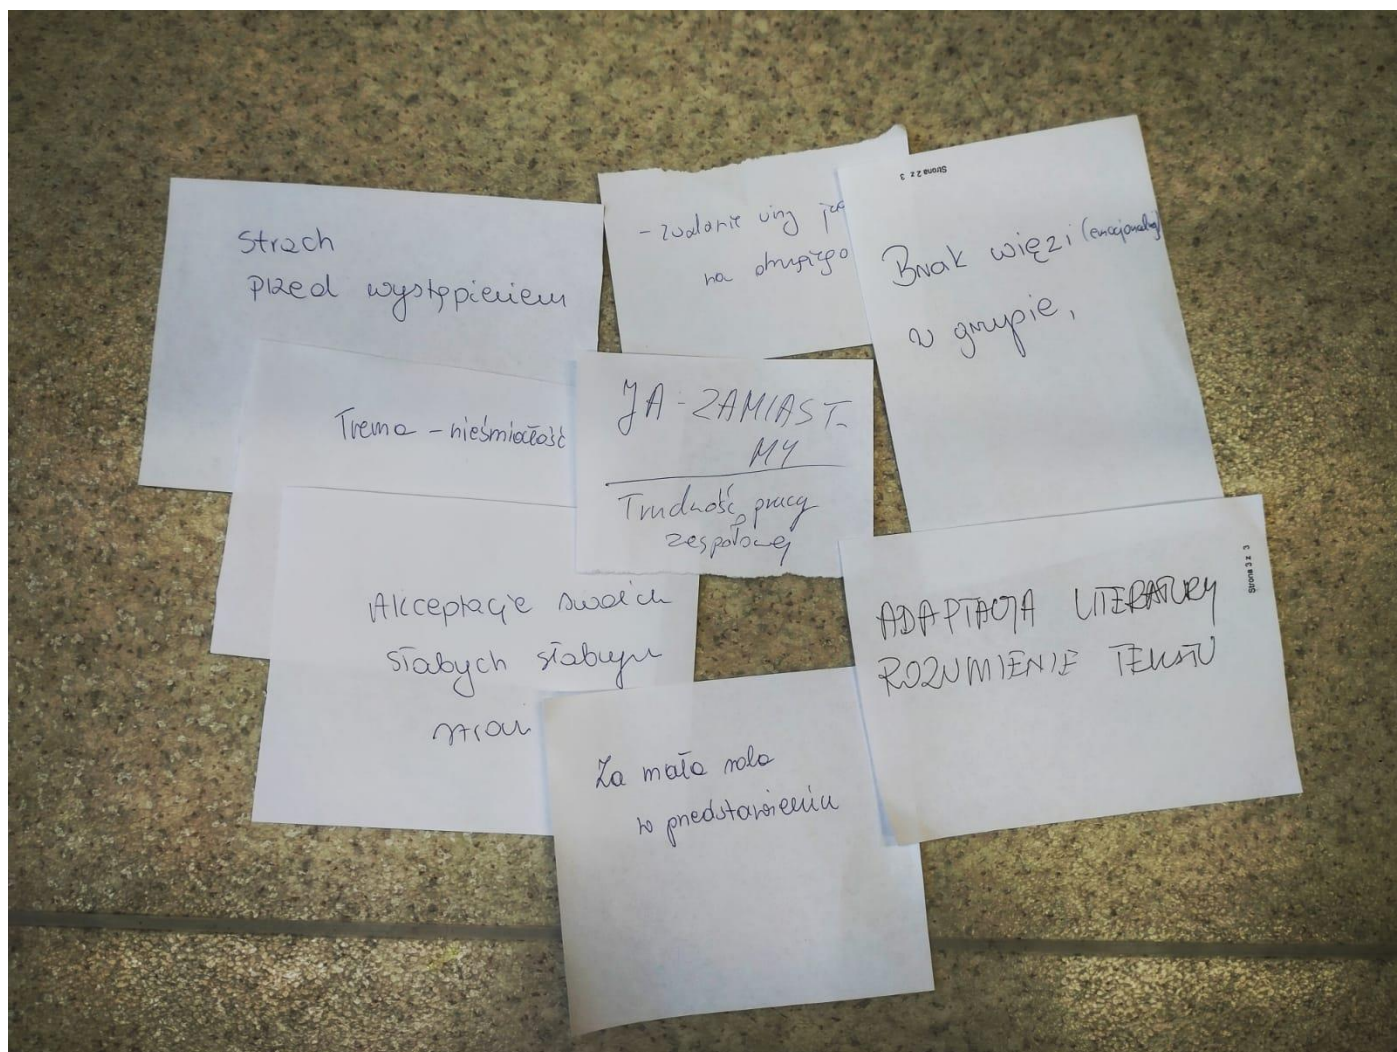 Strach
przed wystąpieniem
- zwalanie winy
na drugiego
Strona 2 z 3
Brak więzi (emocjonalnej)
w grupie,
Trema - nieśmiałość
JA - ZAMIAST -
MY
Trudność pracy
zespołowej
Akceptacje swoich
słabych słabych
stron
ADAPTACJA LITERATURY
ROZUMIENIE TEKSTU
Strona 3 z 3
Za mała rola
w przedstawieniu